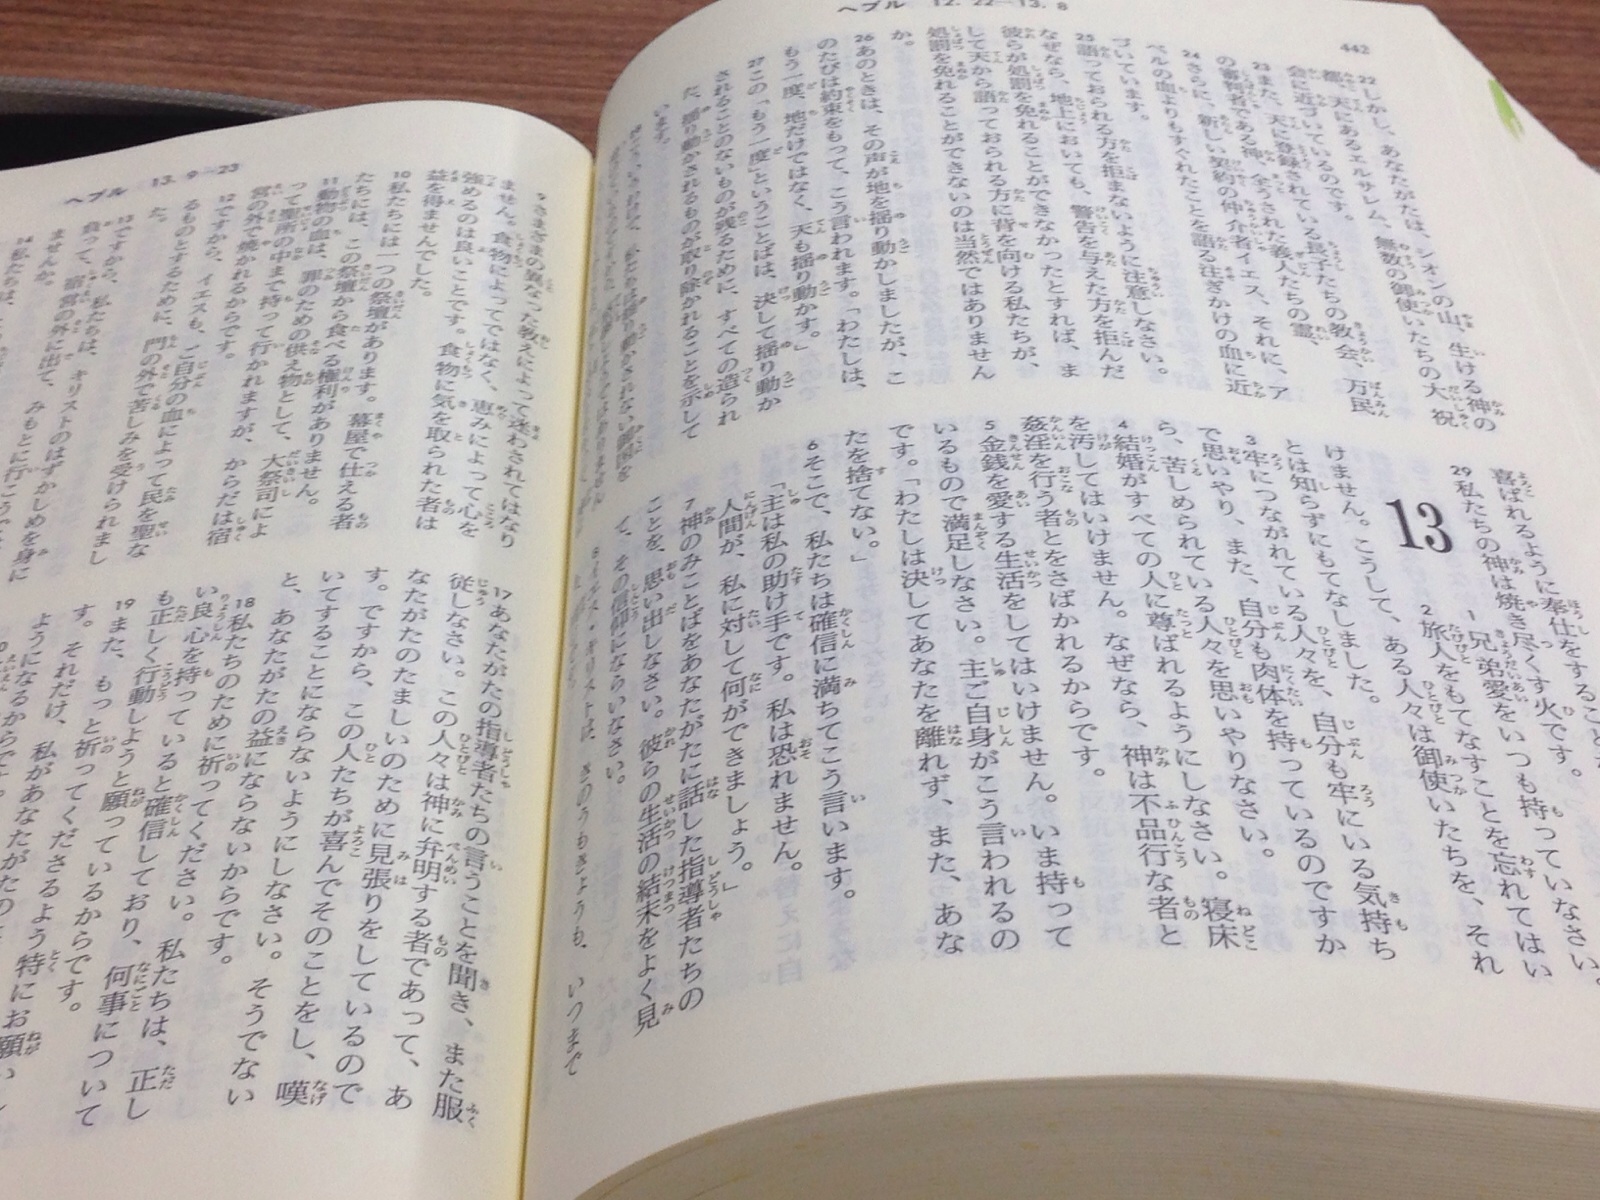 ヘブル 12. 22―13. 8
442
22しかし、あなたがたは、シオンの山、生ける神の
都、天にあるエルサレム、無数の御使いたちの大祝
会に近づいているのです。
23また、天に登録されている長子たちの教会、万民
の審判者である神、全うされた義人たちの霊、
24さらに、新しい契約の仲介者イエス、それに、ア
ベルの血よりもすぐれたことを語る注ぎかけの血に近
づいています。
25語っておられる方を拒まないように注意しなさい。
なぜなら、地上においても、警告を与えた方を拒んだ
彼らが処罰を免れることができなかったとすれば、ま
して天から語っておられる方に背を向ける私たちが、
処罰を免れることができないのは当然ではありません
か。
26あのときは、その声が地を揺り動かしましたが、こ
のたびは約束をもって、こう言われます。「わたしは、
もう一度、地だけではなく、天も揺り動かす。」
27この「もう一度」ということばは、決して揺り動か
されることのないものが残るために、すべての造られ
た、揺り動かされるものが取り除かれることを示して
います。
喜ばれるように奉仕をすること
29私たちの神は焼き尽くす火です。
13
1兄弟愛をいつも持っていなさい。
2旅人をもてなすことを忘れてはい
けません。こうして、ある人々は御使いたちを、それ
とは知らずにもてなしました。
3牢につながれている人々を、自分も牢にいる気持ち
で思いやり、また、自分も肉体を持っているのですか
ら、苦しめられている人々を思いやりなさい。
4結婚がすべての人に尊ばれるようにしなさい。寝床
を汚してはいけません。なぜなら、神は不品行な者と
姦淫を行う者とをさばかれるからです。
5金銭を愛する生活をしてはいけません。いま持って
いるもので満足しなさい。主ご自身がこう言われるの
です。「わたしは決してあなたを離れず、また、あな
たを捨てない。」
6そこで、私たちは確信に満ちてこう言います。
「主は私の助け手です。私は恐れません。
人間が、私に対して何ができましょう。」
7神のみことばをあなたがたに話した指導者たちの
ことを、思い出しなさい。彼らの生活の結末をよく見
て、その信仰にならいなさい。
8イエス・キリストは、きのうもきょうも、いつまで
ヘブル 13. 9―23
9さまざまの異なった教えによって迷わされてはなり
ません。食物によってではなく、恵みによって心を
強めるのは良いことです。食物に気を取られた者は
益を得ませんでした。
10私たちには一つの祭壇があります。幕屋で仕える者
たちには、この祭壇から食べる権利がありません。
11動物の血は、罪のための供え物として、大祭司によ
って聖所の中まで持って行かれますが、からだは宿
営の外で焼かれるからです。
12ですから、イエスも、ご自分の血によって民を聖な
るものとするために、門の外で苦しみを受けられまし
た。
13ですから、私たちは、キリストのはずかしめを身に
負って、宿営の外に出て、みもとに行こうで
ませんか。
14私たちは、
17あなたがたの指導者たちの言うことを聞き、また服
従しなさい。この人々は神に弁明する者であって、あ
なたがたのたましいのために見張りをしているので
す。ですから、この人たちが喜んでそのことをし、嘆
いてすることにならないようにしなさい。そうでない
と、あなたがたの益にならないからです。
18私たちのために祈ってください。私たちは、正し
い良心を持っていると確信しており、何事について
も正しく行動しようと願っているからです。
19また、もっと祈ってくださるよう特にお願いし
す。それだけ、私があなたがたの
ようになるからです。